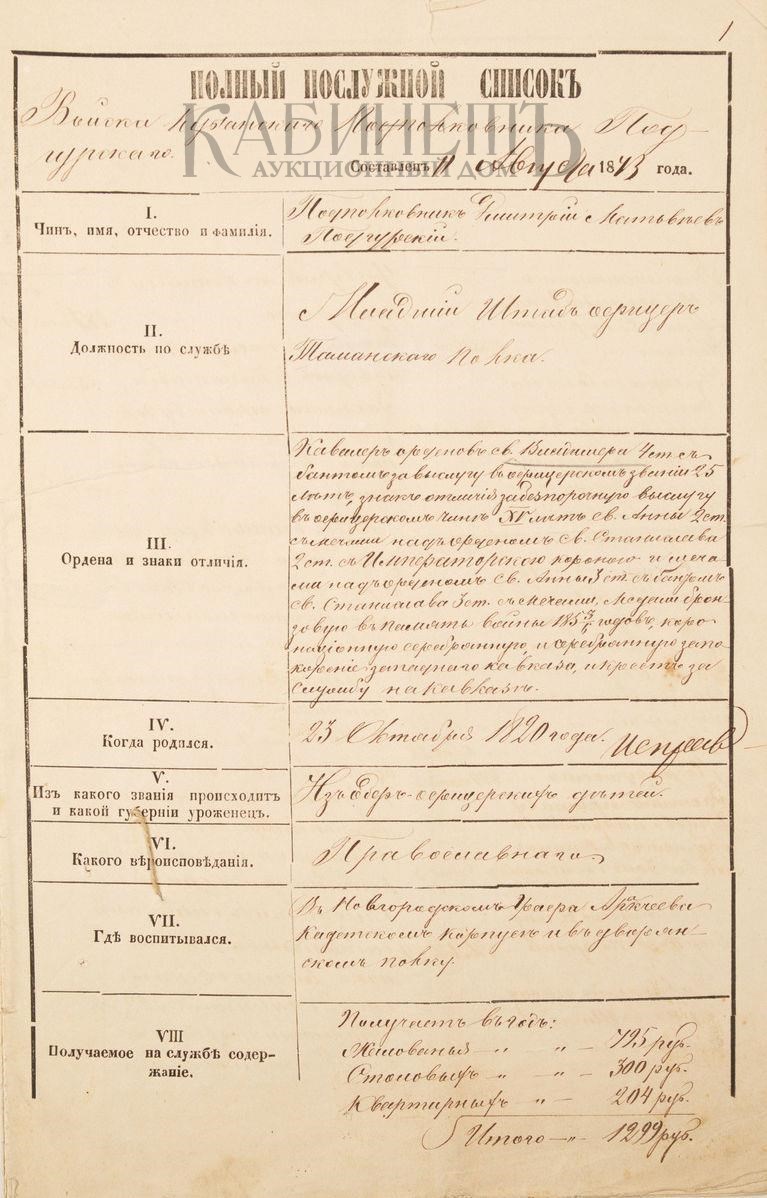 1
ПОЛНЫЙ ПОСЛУЖНОЙ СПИСОКЪ
КАБИНЕТЪ
АУКЦИОННЫЙ ДОМ
Войска Кубанскаго Подполковника Под-
гурскаго.
Составленъ 11 Августа 1873 года.
I.
Чинъ, имя, отчество и фамилія.
Подполковникъ Дмитрій Матвѣевъ
Подгурскій.
II.
Должность по службѣ
Младшій Штабъ офицеръ
Таманскаго полка.
III.
Ордена и знаки отличія.
Кавалеръ орденовъ св. Владиміра 4 ст. съ
бантомъ за выслугу въ офицерскомъ званіи 25
лѣтъ, знакъ отличія за безпорочную выслугу
въ офицерскомъ чинѣ XV лѣтъ св. Анны 2 ст.
съ мечами надъ орденомъ св. Станислава
2 ст. съ Императорскою короною и меча-
ми надъ орденомъ св. Анны 3 ст. съ бантомъ
св. Станислава 3 ст. съ мечами, Медали брон-
зовую въ память войны 1853/6 годовъ, коро-
націонную серебранную, и серебранную за по-
кореніе западнаго кавказа, и крестъ за
службу на кавказѣ.
IV.
Когда родился.
23 Октября 1820 года.
V.
Изъ какого званія происходитъ
и какой губерніи уроженецъ.
Изъ оберъ-офицерскихъ дѣтей.
VI.
Какого вѣроисповѣданія.
Православнаго.
VII.
Гдѣ воспитывался.
Въ Новгородскомъ Графа Аракчеева
Кадетскомъ корпусѣ и въ дворян-
скомъ полку.
VIII
Получаемое на службѣ содер-
жаніе.
Получаетъ въ годъ:
Жалованья -"- " - 795 руб.
Столовыхъ -"- " - 300 руб.
Квартирныхъ -"- - 204 руб.
Итого -"- 1299 руб.